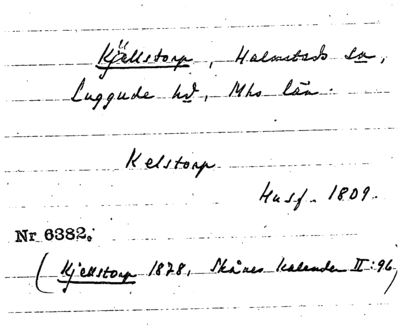 Kjellstorp, Halmstads sn,
Luggude hd, Mhs län.
Kelstorp
Husf. 1809.
Nr 6382.
(Kjellstorp 1878, Skånes Kalender II:96)